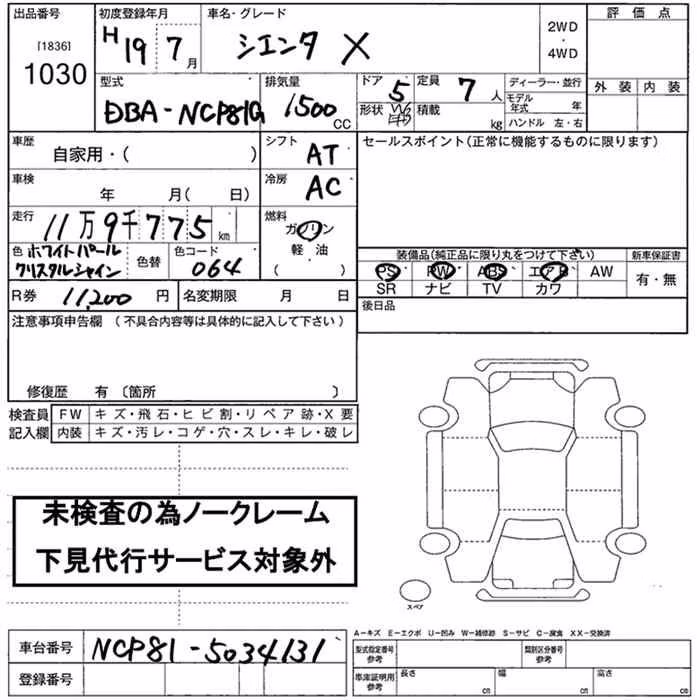 出品番号 初度登録年月 車名・グレード 評価点
[1836] 1030 H 19 7 月 シエンタ X 2WD ・ 4WD
外装 内装
型式 排気量 ドア 5 定員 7 人 ディーラー・並行
DBA-NCP81G 1500 CC 形状 積載 kg モデル年式 年
ハンドル 左・右
車歴 シフト セールスポイント(正常に機能するものに限ります)
自家用・( ) AT
車検 冷房
年 月( 日) AC
走行 燃料
11万9千775 km ガソリン
色 ホワイトパール 色替 色コード 軽・油 装備品(純正品に限り丸をつけて下さい) 新車保証書
クリスタルシャイン 064 ( ) PS PW ABS エアB AW 有・無
R券 11,200 円 名変期限 月 日 SR ナビ TV カワ
注意事項申告欄 (不具合内容等は具体的に記入して下さい) 後日品
修復歴 有 〔箇所 〕
検査員 FW キズ・飛石・ヒビ割・リペア跡・X要
記入欄 内装 キズ・汚レ・コゲ・穴・スレ・キレ・破レ
未検査の為ノークレーム
下見代行サービス対象外
スペア
A-キズ E-エクボ U-凹み W-補修跡 S-サビ C-腐食 XX-交換済
車台番号 NCP81-5034131 型式指定番号 参考 類別区分番号
登録番号 車庫証明用 参考 長さ cm 幅 cm 高さ cm